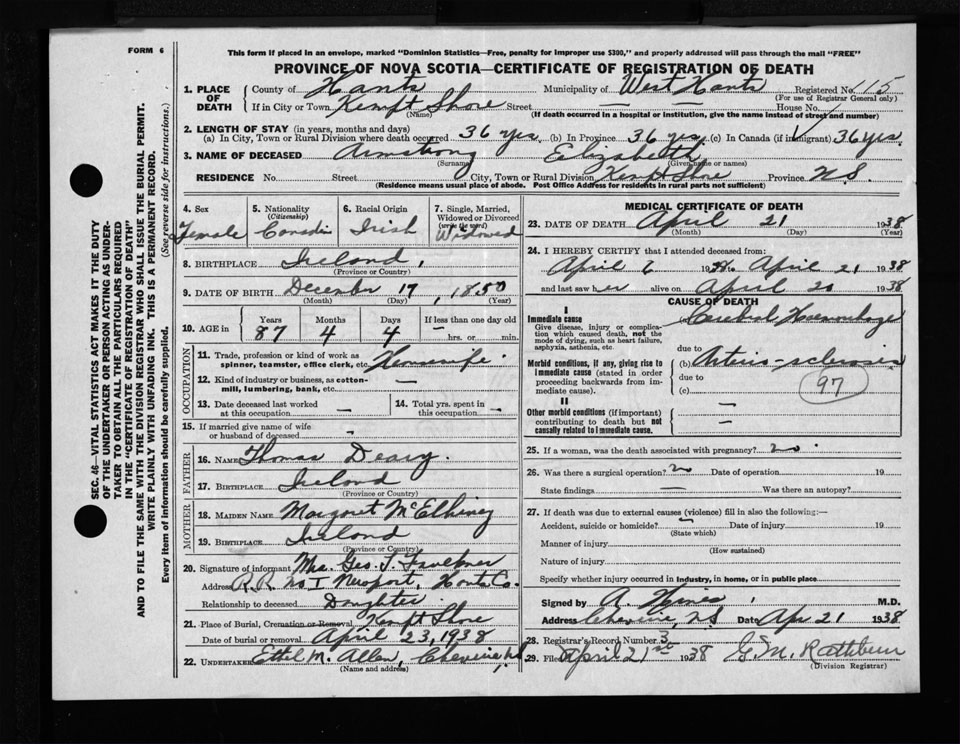 FORM 6
This form if placed in an envelope, marked "Dominion Statistics—Free, penalty for improper use $300," and properly addressed will pass through the mail "FREE"
PROVINCE OF NOVA SCOTIA—CERTIFICATE OF REGISTRATION OF DEATH
SEC. 46—VITAL STATISTICS ACT MAKES IT THE DUTY
OF THE UNDERTAKER OR PERSON ACTING AS UNDER-
TAKER TO OBTAIN ALL THE PARTICULARS REQUIRED
IN THE "CERTIFICATE OF REGISTRATION OF DEATH"
AND TO FILE THE SAME WITH THE DIVISION REGISTRAR WHO SHALL ISSUE THE BURIAL PERMIT.
WRITE PLAINLY WITH UNFADING INK. THIS IS A PERMANENT RECORD.
Every item of information should be carefully supplied. (See reverse side for instructions.)
1. PLACE OF DEATH County of Hants Municipality of West Hants Registered No. 115
(For use of Registrar General only)
If in City or Town Kempt Shore Street — House No. —
(Name) (If death occurred in a hospital or institution, give the name instead of street and number)
2. LENGTH OF STAY (in years, months and days)
(a) In City, Town or Rural Division where death occurred 36 yrs. (b) In Province 36 yrs. (c) In Canada (if immigrant) 36 yrs.
3. NAME OF DECEASED Armstrong Elizabeth
(Surname) (Given name or names)
RESIDENCE No. Street City, Town or Rural Division Kempt Shore Province N.S.
(Residence means usual place of abode. Post Office Address for residents in rural parts not sufficient)
4. Sex 5. Nationality (Citizenship) 6. Racial Origin 7. Single, Married, Widowed or Divorced (write the word)
Female Canadian Irish Widowed
8. BIRTHPLACE Ireland,
(Province or Country)
9. DATE OF BIRTH December 17, 1850
(Month) (Day) (Year)
10. AGE in Years Months Days If less than one day old
87 4 4 — hrs. or min.
OCCUPATION
11. Trade, profession or kind of work as spinner, teamster, office clerk, etc. Housewife.
12. Kind of industry or business, as cotton-mill, lumbering, bank, etc. —
13. Date deceased last worked at this occupation — 14. Total yrs. spent in this occupation —
15. If married give name of wife or husband of deceased —
FATHER
16. NAME Thomas Deary.
17. BIRTHPLACE Ireland
(Province or Country)
MOTHER
18. MAIDEN NAME Margaret McElhiney
19. BIRTHPLACE Ireland
(Province or Country)
20. Signature of informant Mrs. Geo. T. Faulkner
Address R.R. No I Newport, Hants Co.
Relationship to deceased Daughter
21. Place of Burial, Cremation or Removal Kempt Shore
Date of burial or removal April 23, 1938
22. UNDERTAKER Ethel M. Allen, Cheverie N.S.
(Name and address)
MEDICAL CERTIFICATE OF DEATH
23. DATE OF DEATH April 21 1938
(Month) (Day) (Year)
24. I HEREBY CERTIFY that I attended deceased from:
April 6 1938 to April 21 1938
and last saw her alive on April 20 1938
CAUSE OF DEATH
I
Immediate cause
Give disease, injury or complication which caused death, not the mode of dying, such as heart failure, asphyxia, asthenia, etc.
Cerebral Haemorrhage
due to
Morbid conditions, if any, giving rise to immediate cause (stated in order proceeding backwards from immediate cause).
(b) Arterio-sclerosis
due to
(c) 97
II
Other morbid conditions (if important) contributing to death but not causally related to immediate cause.
—
—
25. If a woman, was the death associated with pregnancy? no
26. Was there a surgical operation? no Date of operation 19
State findings — Was there an autopsy?
27. If death was due to external causes (violence) fill in also the following:—
Accident, suicide or homicide? — Date of injury 19
(State which)
Manner of injury
(How sustained)
Nature of injury
Specify whether injury occurred in industry, in home, or in public place
Signed by M.D.
Address Cheverie, N.S. Date Apr. 21 1938
28. Registrar's Record Number 3
29. Filed April 21st 1938 G.M. Rathbun
(Division Registrar)